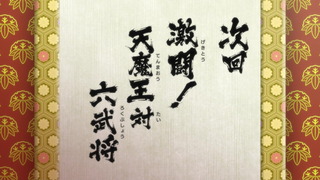 次回
激闘！
天魔王対
六武将
げきとう
てんまおう
たい
ろくぶしょう